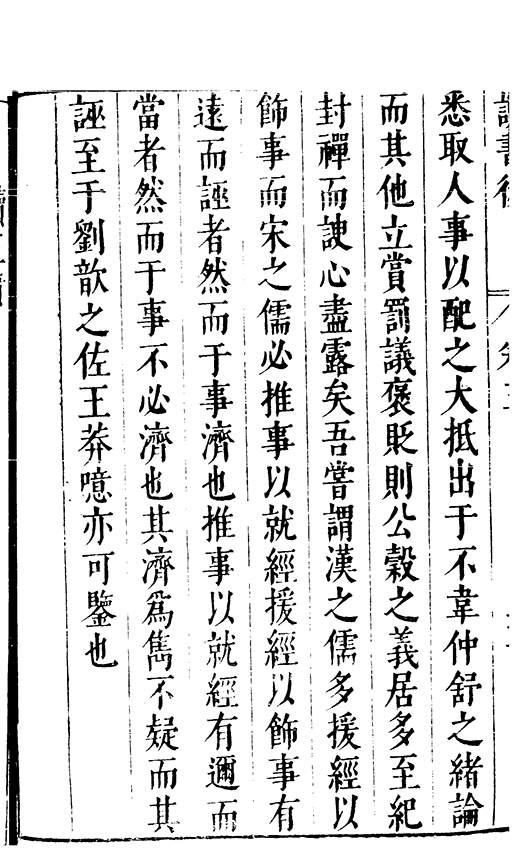 讀書後
悉取人事以配之大抵出于不韋仲舒之緒論
而其他立賞罰議褒貶則公穀之義居多至紀
封禪而諛心盡露矣吾嘗謂漢之儒多援經以
飾事而宋之儒必推事以就經援經以飾事有
遠而誣者然而于事濟也推事以就經有邇而
當者然而于事不必濟也其濟爲雋不疑而其
誣至于劉歆之佐王莽噫亦可鑒也